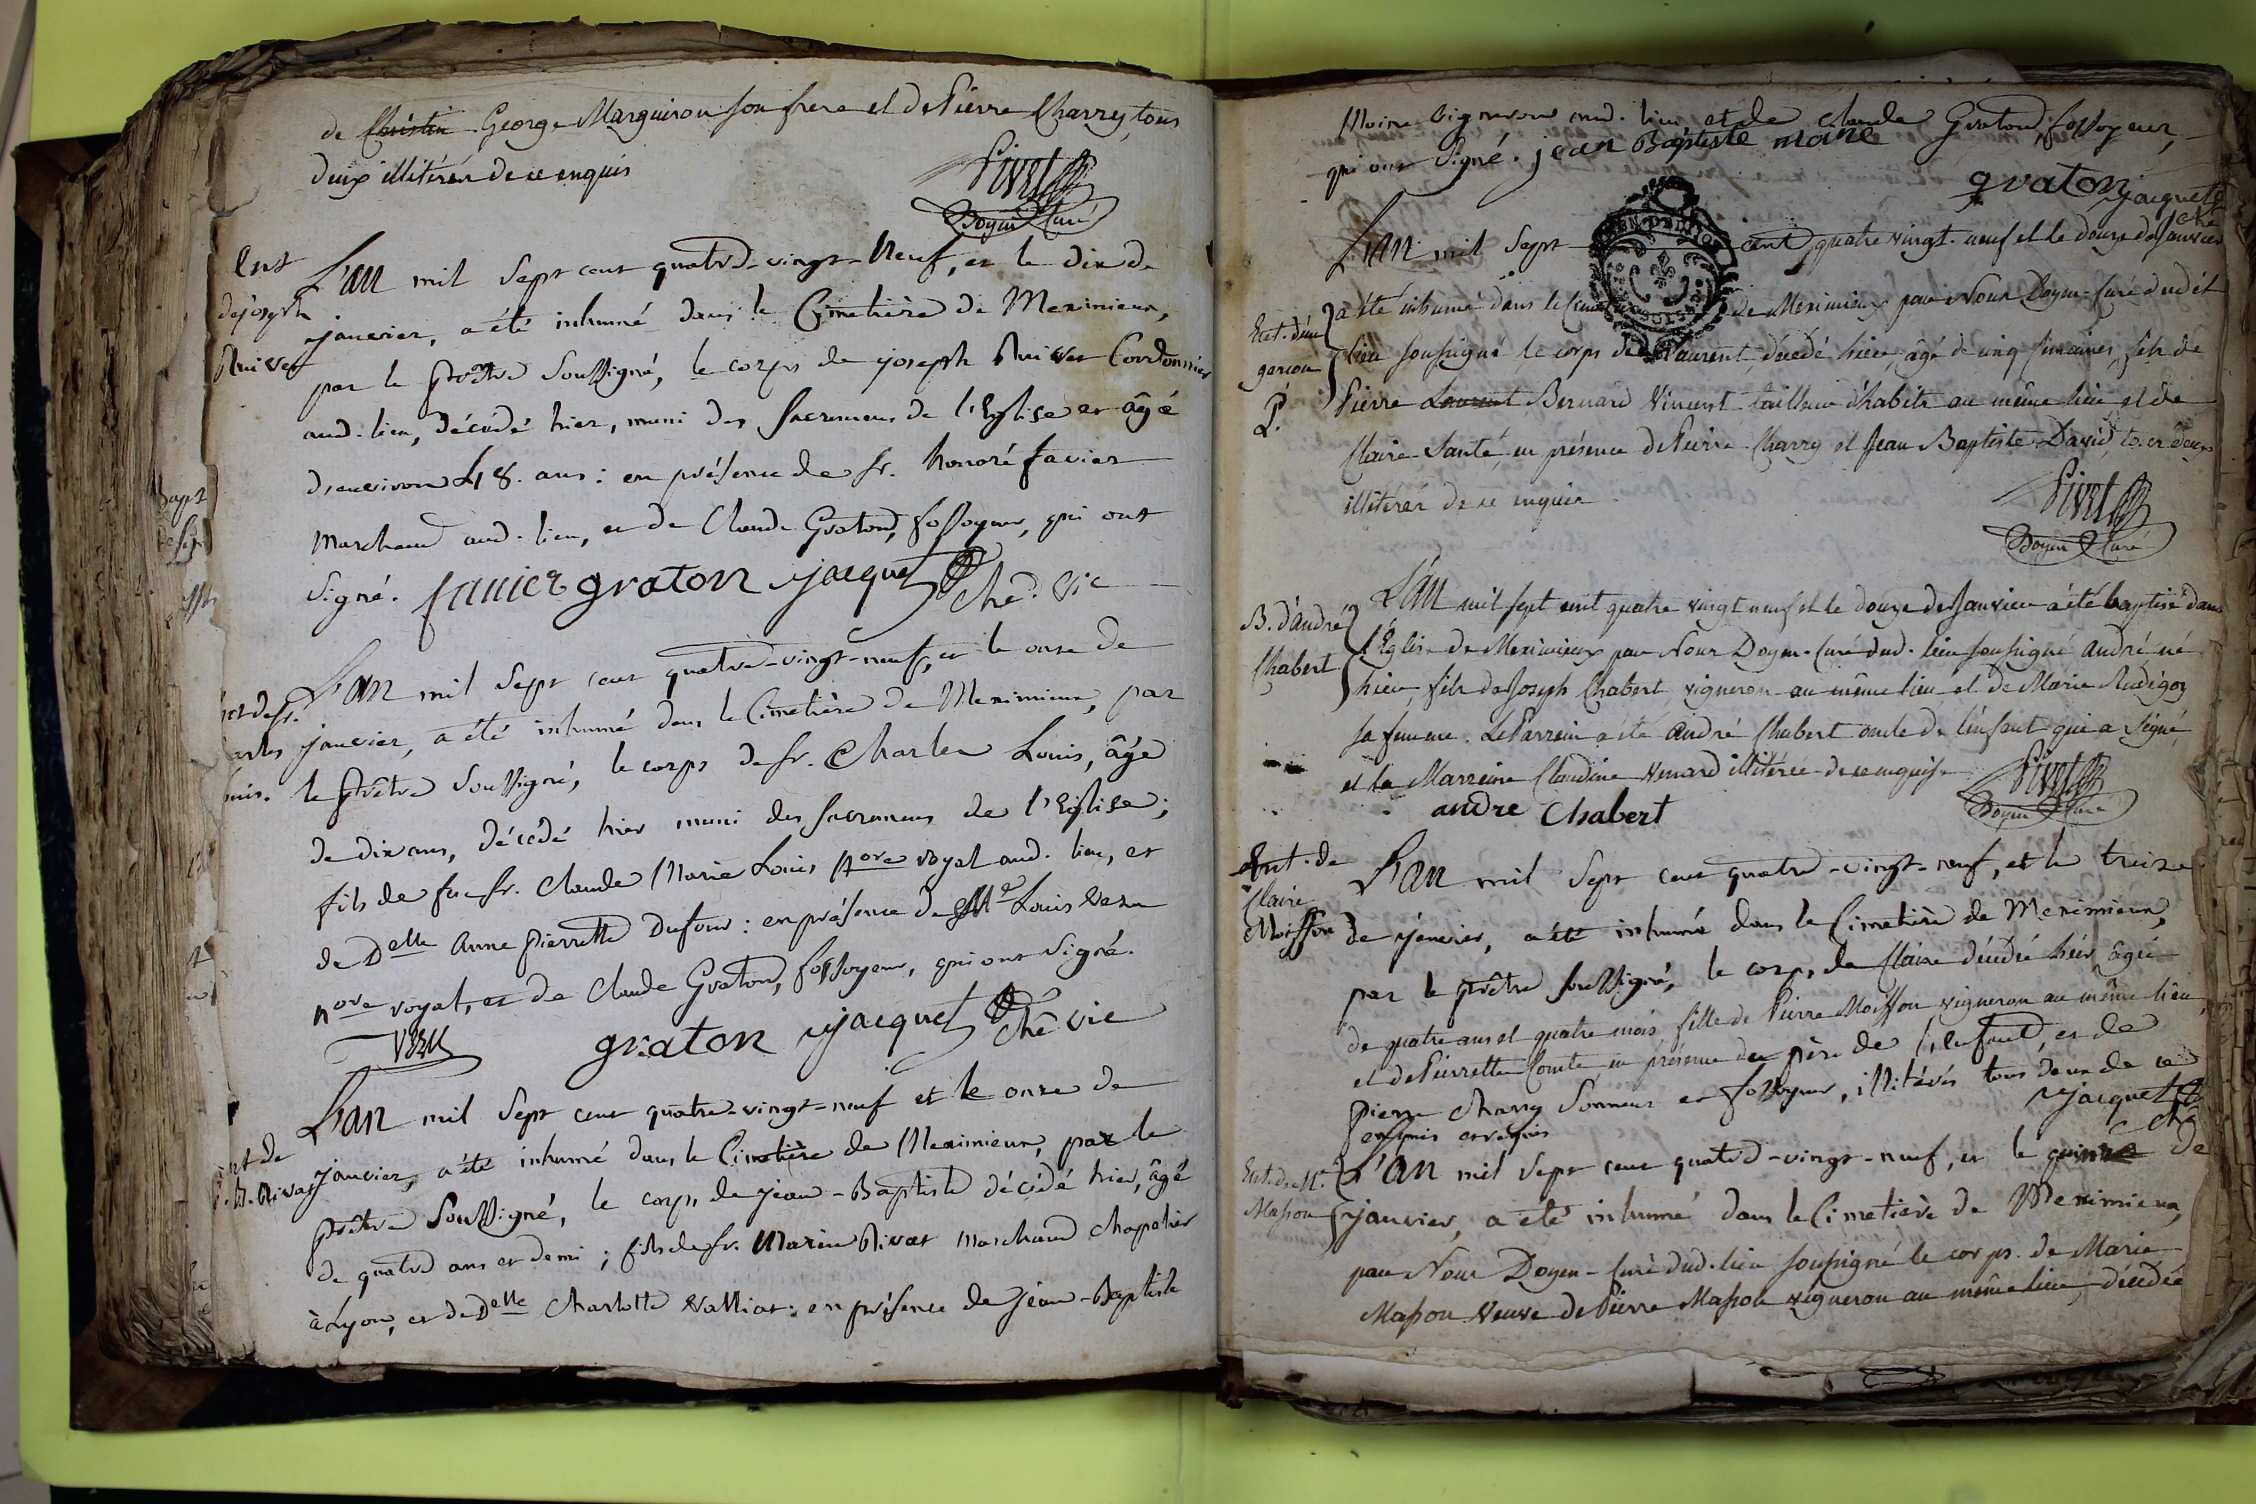 de Christin George Marguiron son frere et de Pierre Charrey, tous
deux illitérés de ce enquis
Pivet
Doyen Curé
Ent
de joseph
L'an mil sept cent quatre-vingt-Neuf, et le dix de
janvier, a été inhumé dans le Cimetière de Meximieux,
par le prêtre soussigné, le corps de joseph Cordonnier
aud. lieu, décédé hier, muni des sacremens de l'Eglise et âgé
d'environ 48. ans : en présence de sr. honoré favier
Marchand aud. lieu, et de Claude Graton, fossoyeur, qui ont
signé. favier graton jacquet
Che. Vic
L'an mil sept cent quatre-vingt-neuf, et le onze de
janvier, a été inhumé dans le Cimetière de Meximieux, par
le prêtre soussigné, le corps de sr. Charles Louis, âgé
de dix ans, décédé hier muni des sacremens de l'Eglise ;
fils de feu sr. Claude Marie Louis Nore royal aud. lieu, et
de Delle Anne Pierrette Dufour : en présence de Me Louis
nore royal, et de Claude Graton, fossoyeur, qui ont signé.
graton jacquet
Che vic
L'an mil sept cent quatre-vingt-neuf et le onze de
janvier, a été inhumé dans le Cimetière de Meximieux, par le
prêtre soussigné, le corps de jean-Baptiste décédé hier, âgé
de quatre ans et demi ; fils de sr. Marin Rivat Marchand chapelier
à Lyon, et de Delle Charlotte : en présence de jean-Baptiste
Moine vigneron aud. lieu et de Claude Graton, fossoyeur,
qui ont signé. jean Baptiste moine
graton jacquet
che
L'an mil sept cent quatre vingt-neuf et le douze de Janvier
Ent. d'un
garçon
a été inhumé dans le de Meximieux par Nous Doyen-Curé dudit
lieu soussigné le corps de Laurent, décédé hier, âgé de cinq semaines, fils de
Pierre Laurent Bernard Vincent tailleur d'habits au même lieu et de
Claire Santé, en présence de Pierre Charrey et Jean Baptiste David, tous deux
illitérés de ce enquis
Pivet
Doyen Curé
B. d'andré
Chabert
L'an mil sept cent quatre vingt neuf et le douze de Janvier a été baptisé dans
l'Eglise de Meximieux par Nous Doyen-Curé dud. lieu soussigné andré né
hier fils de Joseph Chabert vigneron au même lieu et de Marie Rudigoz
sa femme. Le Parrein a été André Chabert oncle de l'enfant qui a signé,
et la Marreine Claudine illitérée de ce enquise
andre Chabert
Pivet
Doyen Curé
Ent. de
Claire
Moisson
L'an mil sept cent quatre-vingt-neuf, et le treize
de janvier, a été inhumé dans le Cimetière de Meximieux,
par le prêtre soussigné, le corps de Claire décédée hier, âgée
de quatre ans et quatre mois fille de Pierre Moisson vigneron au même lieu,
et de Pierrette Comte en présence du père de l'enfant, et de
pierre Charrey sonneur et fossoyeur, illitérés tous deux de ce
enquis et requis
jacquet
che
Ent. de M.
Masson
L'an mil sept cent quatre-vingt-neuf, et le quinze de
janvier, a été inhumé dans le Cimetière de Meximieux,
par Nous Doyen-Curé dud. lieu soussigné le corps de Marie
Masson Veuve de Pierre Masson vigneron au même lieu, décédée